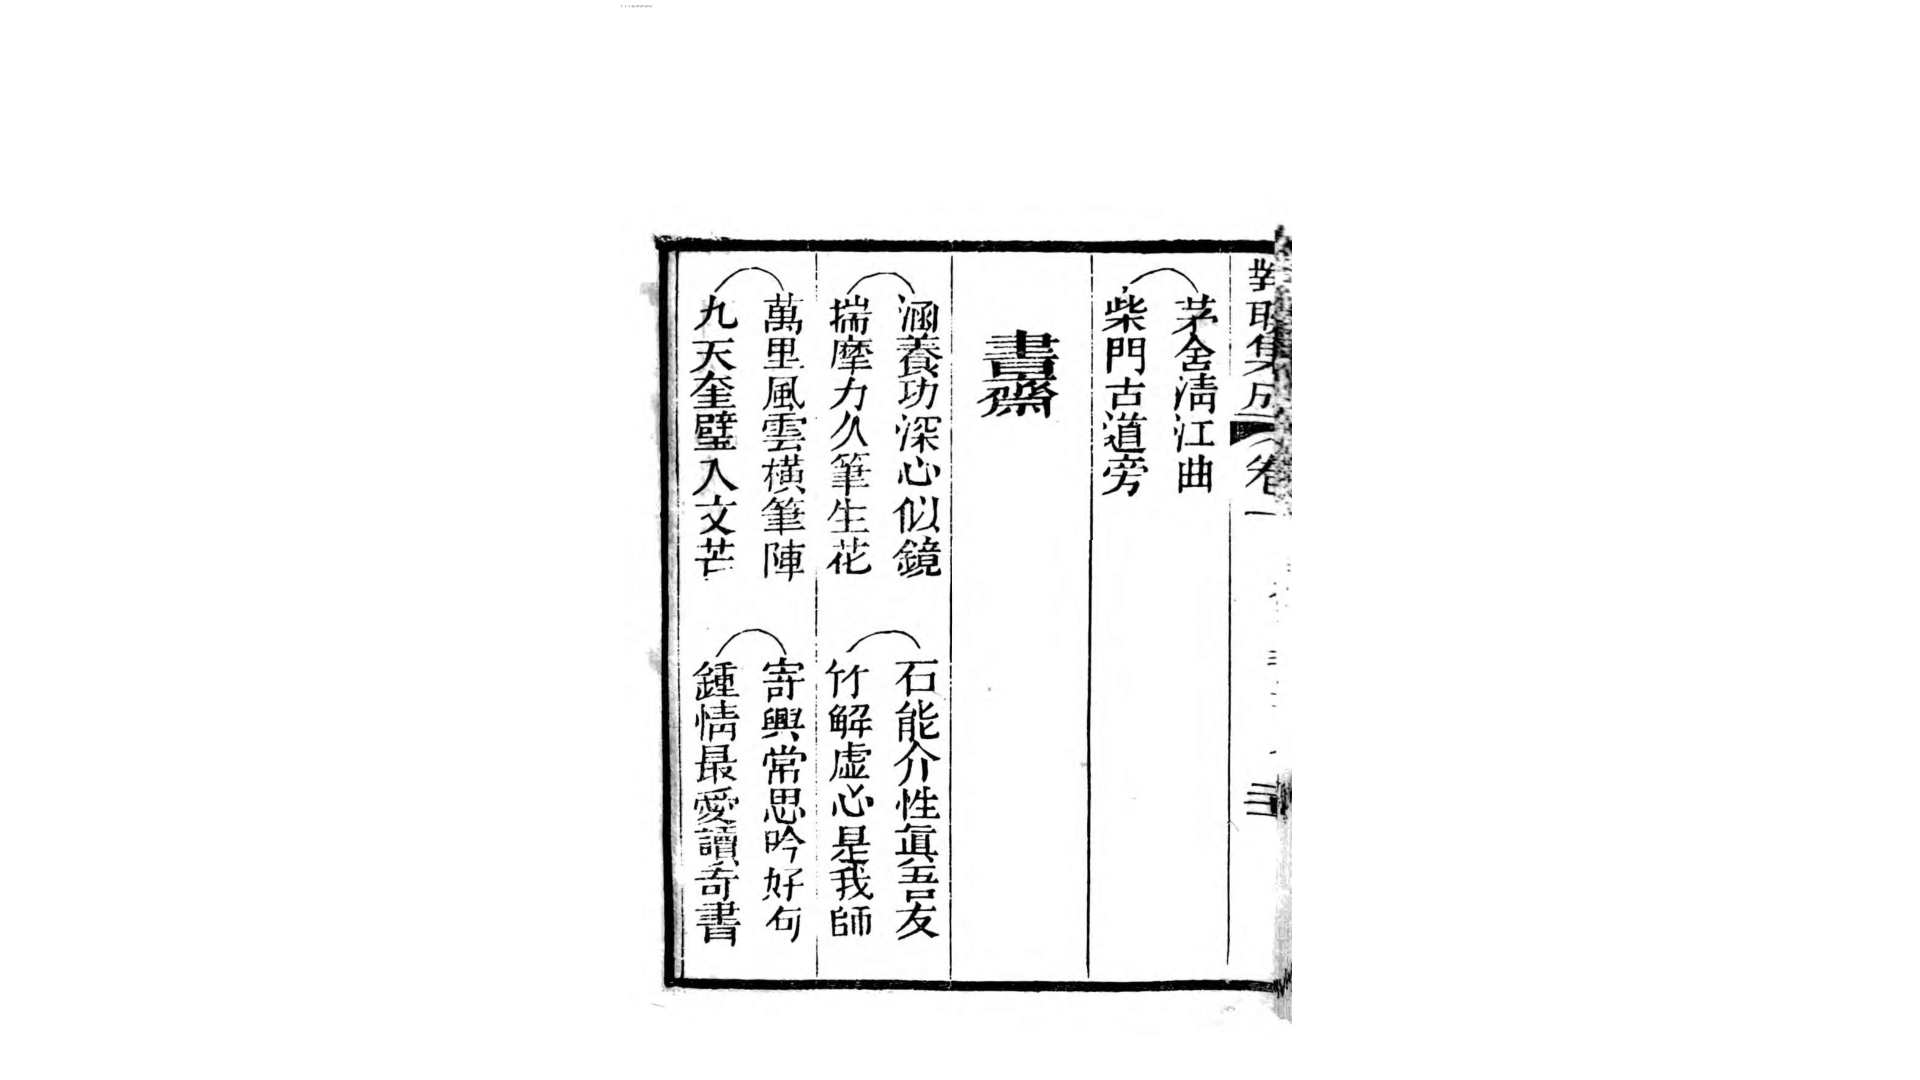 對聯集成
卷一
茅舍淸江曲
柴門古道旁
書齋
涵養功深心似鏡
揣摩力久筆生花
石能介性眞吾友
竹解虛心是我師
萬里風雲橫筆陣
九天奎璧入文芒
寄興常思吟好句
鍾情最愛讀奇書